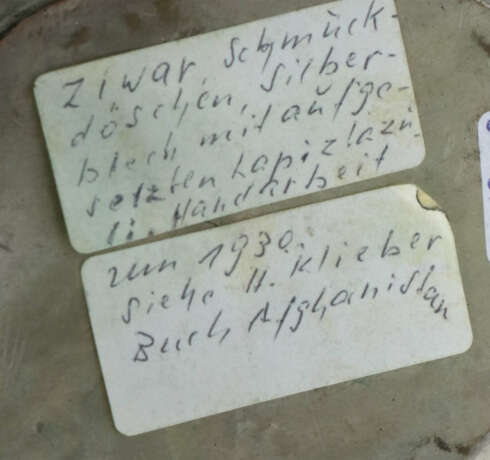 Ziwar, Schmuck-
döschen, Silber-
blech mit aufge-
setzten Lapizlazu-
li. Handarbeit
um 1930.
Siehe H. Klieber
Buch Afghanistan